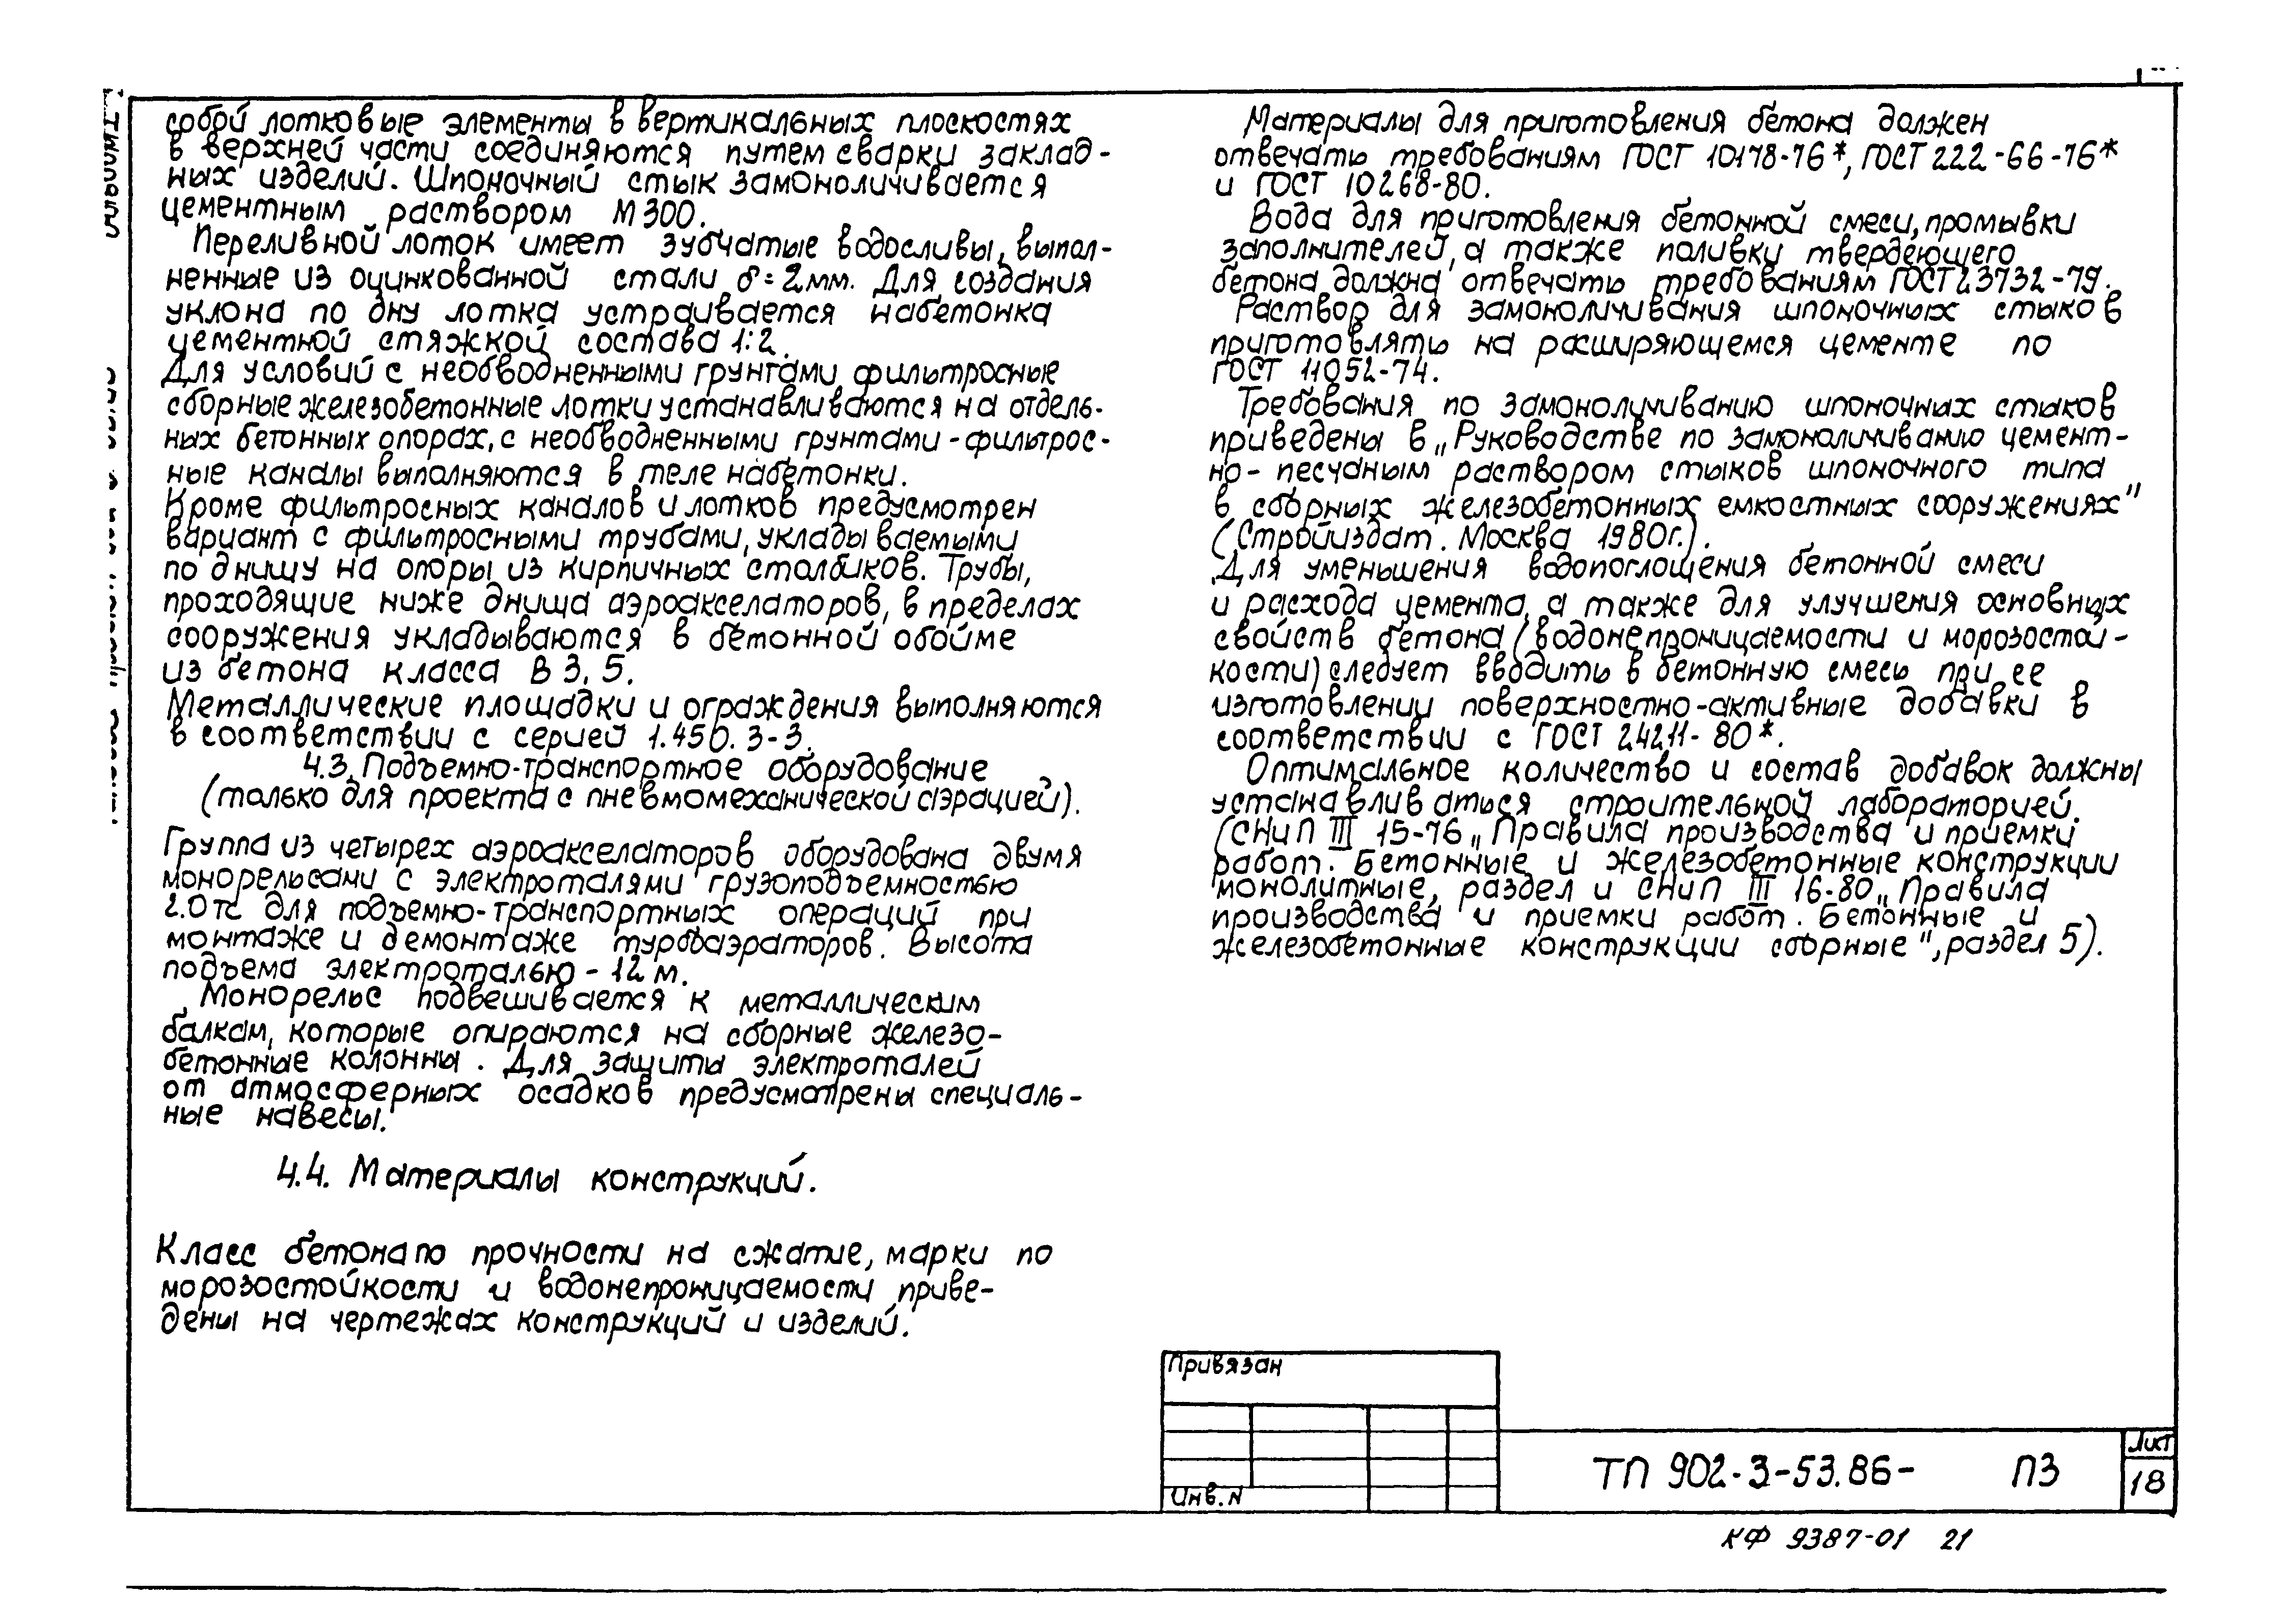 собой лотковые элементы в вертикальных плоскостях
в верхней части соединяются путем сварки заклад-
ных изделий. Шпоночный стык замоноличивается
цементным раствором М300.
Переливной лоток имеет зубчатые водосливы, выпол-
ненные из оцинкованной стали δ=2мм. Для создания
уклона по дну лотка устраивается набетонка
цементной стяжкой состава 1:2.
Для условий с необводненными грунтами фильтросные
сборные железобетонные лотки устанавливаются на отдель-
ных бетонных опорах, с необводненными грунтами - фильтрос-
ные каналы выполняются в теле набетонки.
Кроме фильтросных каналов и лотков предусмотрен
вариант с фильтросными трубами, укладываемыми
по днищу на опоры из кирпичных столбиков. Трубы,
проходящие ниже днища аэроакселаторов, в пределах
сооружения укладываются в бетонной обойме
из бетона класса В 3,5.
Металлические площадки и ограждения выполняются
в соответствии с серией 1.450.3-3.
4.3. Подъемно-транспортное оборудование
(только для проекта с пневмомеханической аэрацией).
Группа из четырех аэроакселаторов оборудована двумя
монорельсами с электроталями грузоподъемностью
2.0 тс для подъемно-транспортных операций при
монтаже и демонтаже турбоаэраторов. Высота
подъема электроталью - 12 м.
Монорельс подвешивается к металлическим
балкам, которые опираются на сборные железо-
бетонные колонны. Для защиты электроталей
от атмосферных осадков предусмотрены специаль-
ные навесы.
4.4. Материалы конструкций.
Класс бетона по прочности на сжатие, марки по
морозостойкости и водонепроницаемости приве-
дены на чертежах конструкций и изделий.
Материалы для приготовления бетона должен
отвечать требованиям ГОСТ 10178-76*, ГОСТ 222-66-76*
и ГОСТ 10268-80.
Вода для приготовления бетонной смеси, промывки
заполнителей, а также поливки твердеющего
бетона должна отвечать требованиям ГОСТ 23732-79.
Раствор для замоноличивания шпоночных стыков
приготовлять на расширяющемся цементе по
ГОСТ 11052-74.
Требования по замоноличиванию шпоночных стыков
приведены в „Руководстве по замоноличиванию цемент-
но-песчаным раствором стыков шпоночного типа
в сборных железобетонных емкостных сооружениях"
(Стройиздат. Москва 1980г.).
Для уменьшения водопоглощения бетонной смеси
и расхода цемента, а также для улучшения основных
свойств бетона (водонепроницаемости и морозостой-
кости) следует вводить в бетонную смесь при ее
изготовлении поверхностно-активные добавки в
соответствии с ГОСТ 24211-80*.
Оптимальное количество и состав добавок должны
устанавливаться строительной лабораторией.
(СНиП III 15-76 „Правила производства и приемки
работ. Бетонные и железобетонные конструкции
монолитные, раздел и СНиП III 16-80 „Правила
производства и приемки работ. Бетонные и
железобетонные конструкции сборные", раздел 5).
Привязан
Инв. N
ТП 902-3-53.86- ПЗ
Лист
18
КФ 9387-01 21